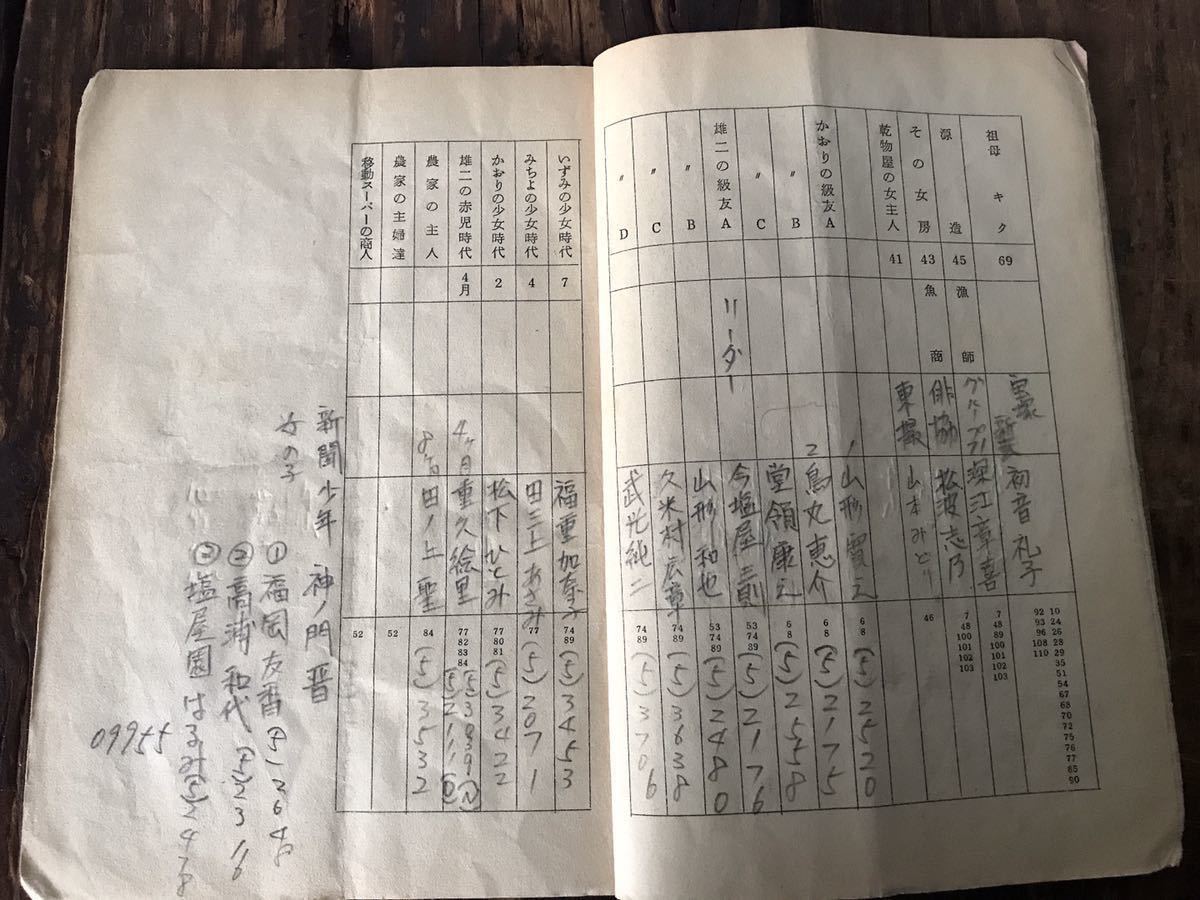 祖母 キク 69 初音礼子 10 24 26 28 29 35 51 54 67 68 70 72 75 76 77 85 90 92 93 96 108 110
源造 45 漁師 深江章喜 7 48 89 100 101 102 103
その女房 43 魚商 俳協 松波志乃 7 48 100 101 102 103
乾物屋の女主人 41 東撮 山本みどり 46
かおりの級友 A 1 山形 6 8 (5)2520
〃 B 2 鳥丸恵介 6 8 (5)2175
〃 C 堂領康之 6 8 (5)2558
雄二の級友 A リーダー 今塩屋 53 74 89 (5)2176
〃 B 山形和也 53 74 89 (5)2480
〃 C 久米村広章 74 89 (5)3638
〃 D 武光純二 74 89 (5)3706
いずみの少女時代 7 福重加奈子 74 89 (5)3453
みちよの少女時代 4 田三上あさみ 77 (5)2071
かおりの少女時代 2 松下ひとみ 77 80 81 (5)3422
雄二の赤児時代 4月 4ヶ月 重久絵里 77 82 83 84 (5)3939 (5)211
農家の主人 田ノ上聖 84 (5)3532
農家の主婦達 52
移動スーパーの商人 52
新聞少年 神ノ門晋
女の子 ① 福岡友香 (5)2648
② 高浦和代 (5)2316
③ 塩屋園はるみ (5)2478
09955